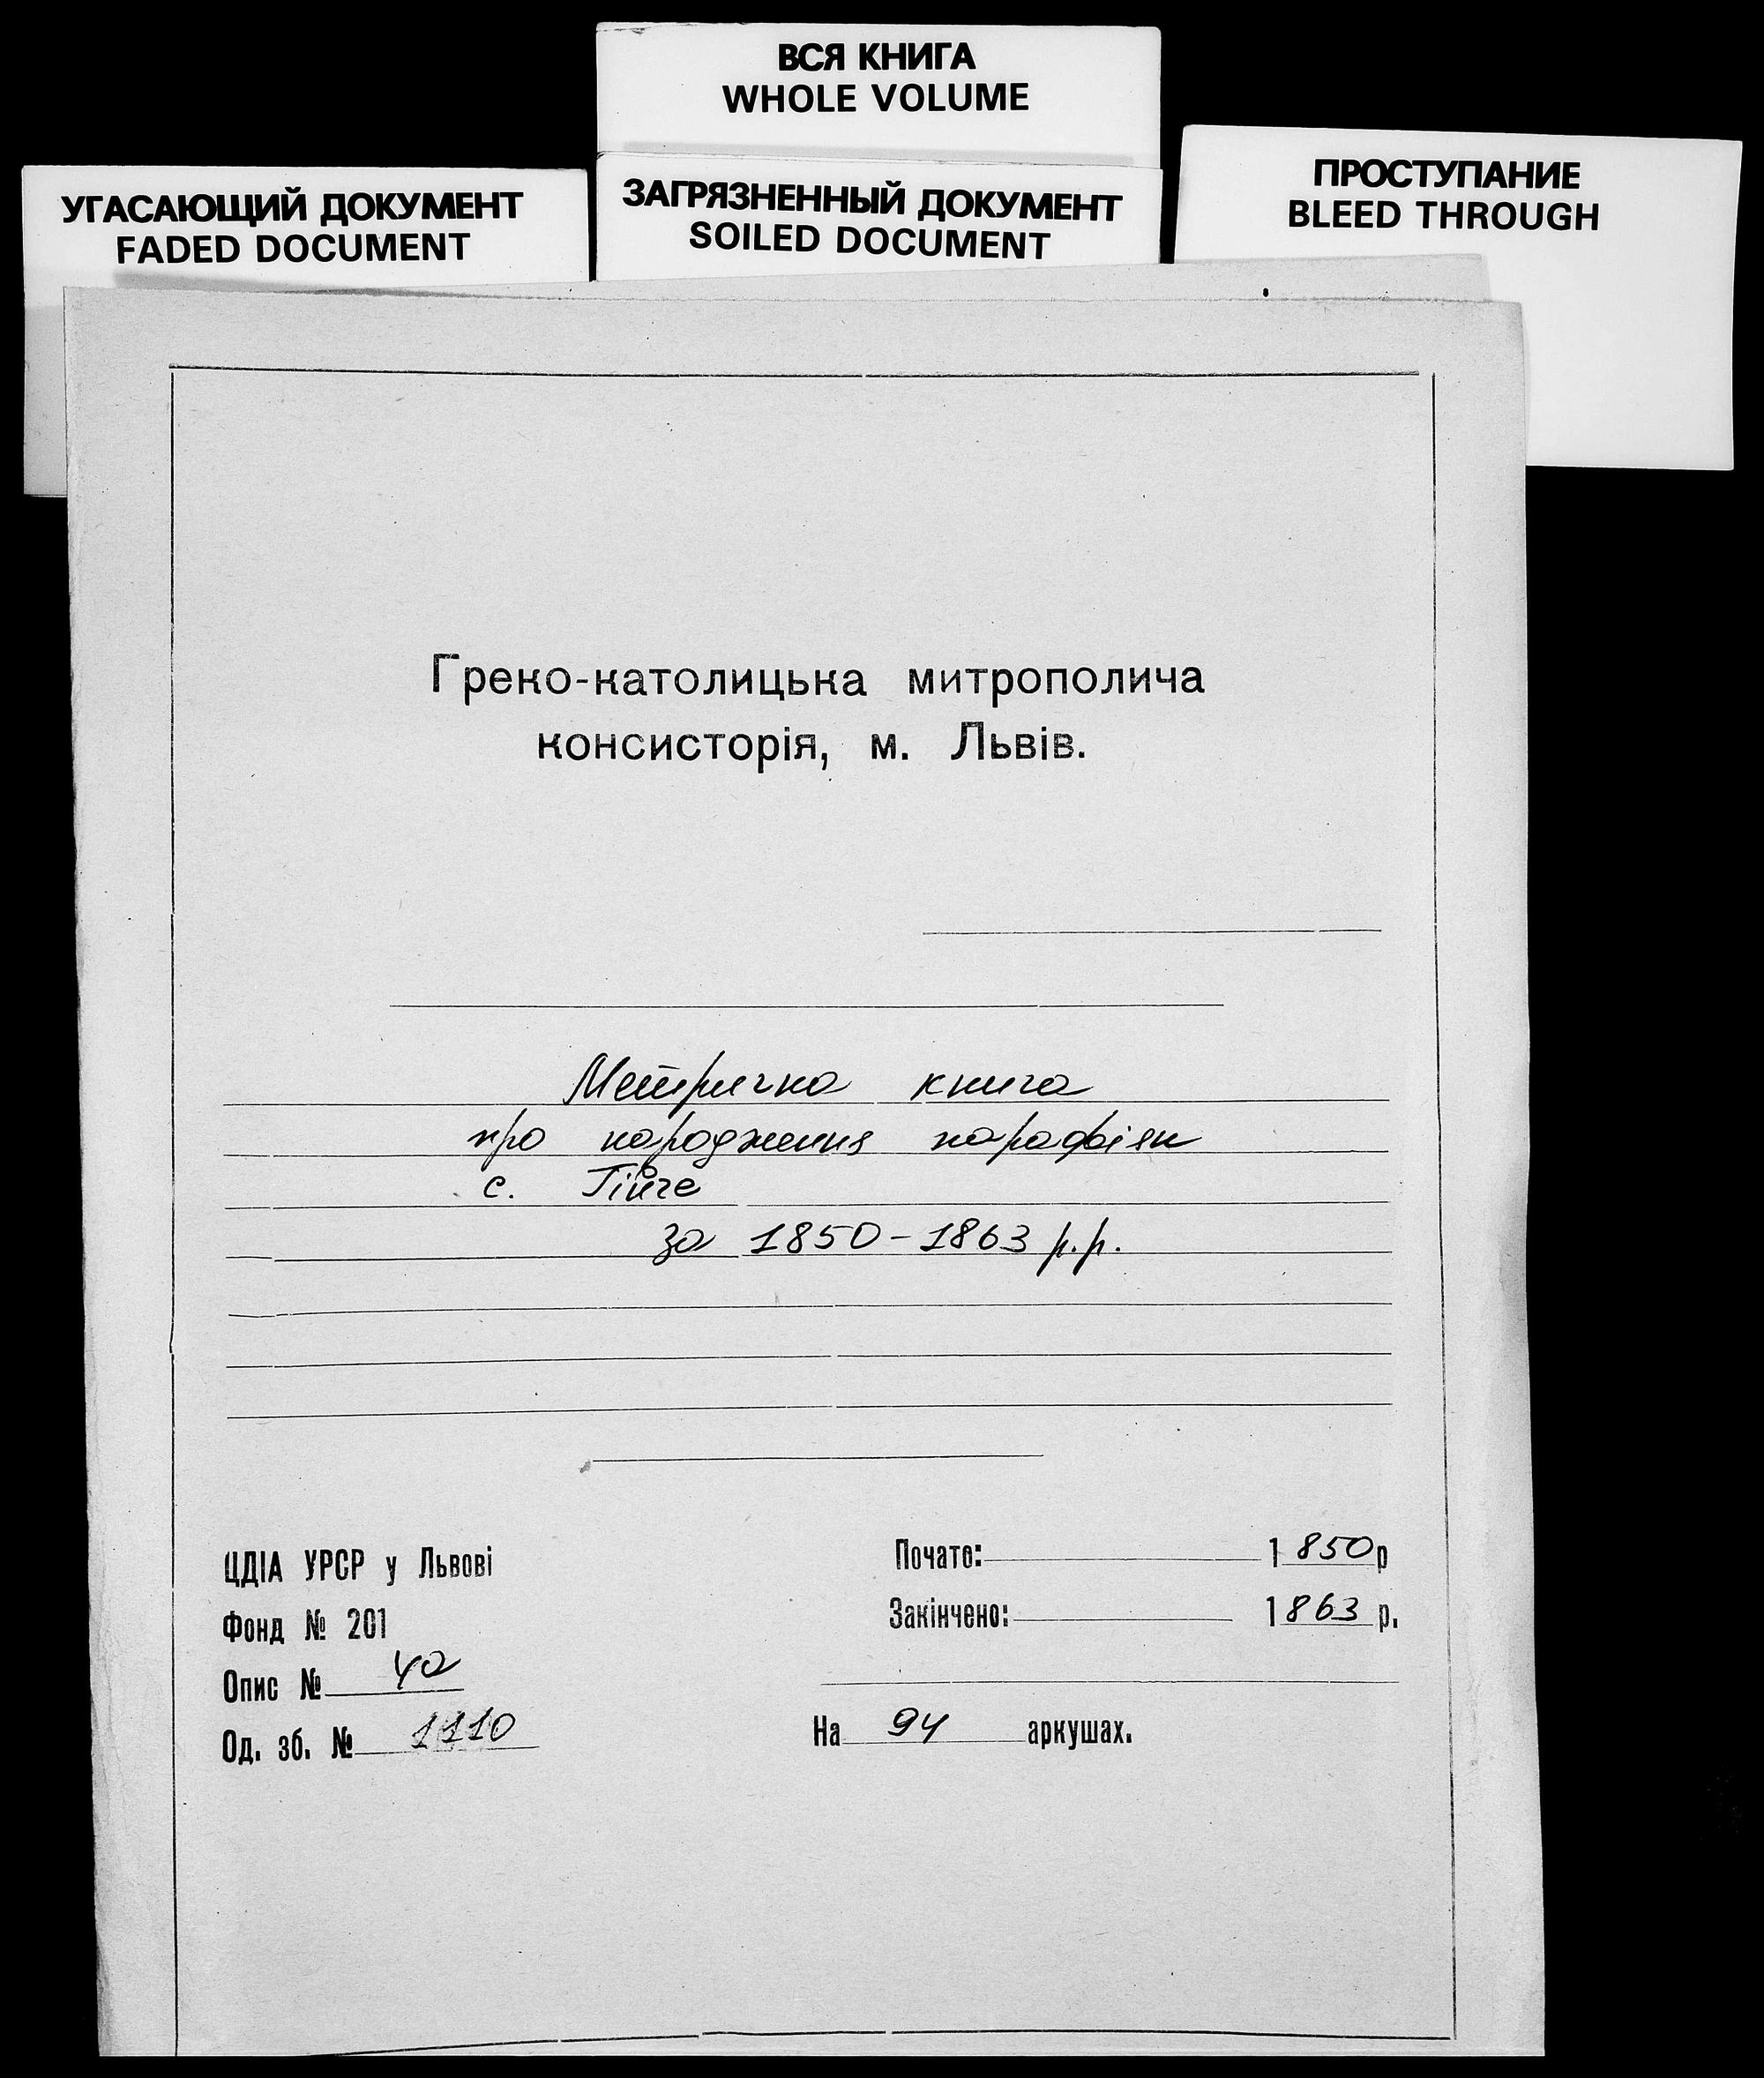 ВСЯ КНИГА
WHOLE VOLUME
УГАСАЮЩИЙ ДОКУМЕНТ
FADED DOCUMENT
ЗАГРЯЗНЕННЫЙ ДОКУМЕНТ
SOILED DOCUMENT
ПРОСТУПАНИЕ
BLEED THROUGH
Греко-католицька митрополича
консисторія, м. Львів.
Метрична книга
про народження парафіян
с. Гійче
за 1850-1863 р.р.
ЦДІА УРСР у Львові
Фонд № 201
Опис № 4а
Од. зб. № 1110
Почато: 1850р
Закінчено: 1863 р.
На 94 аркушах.